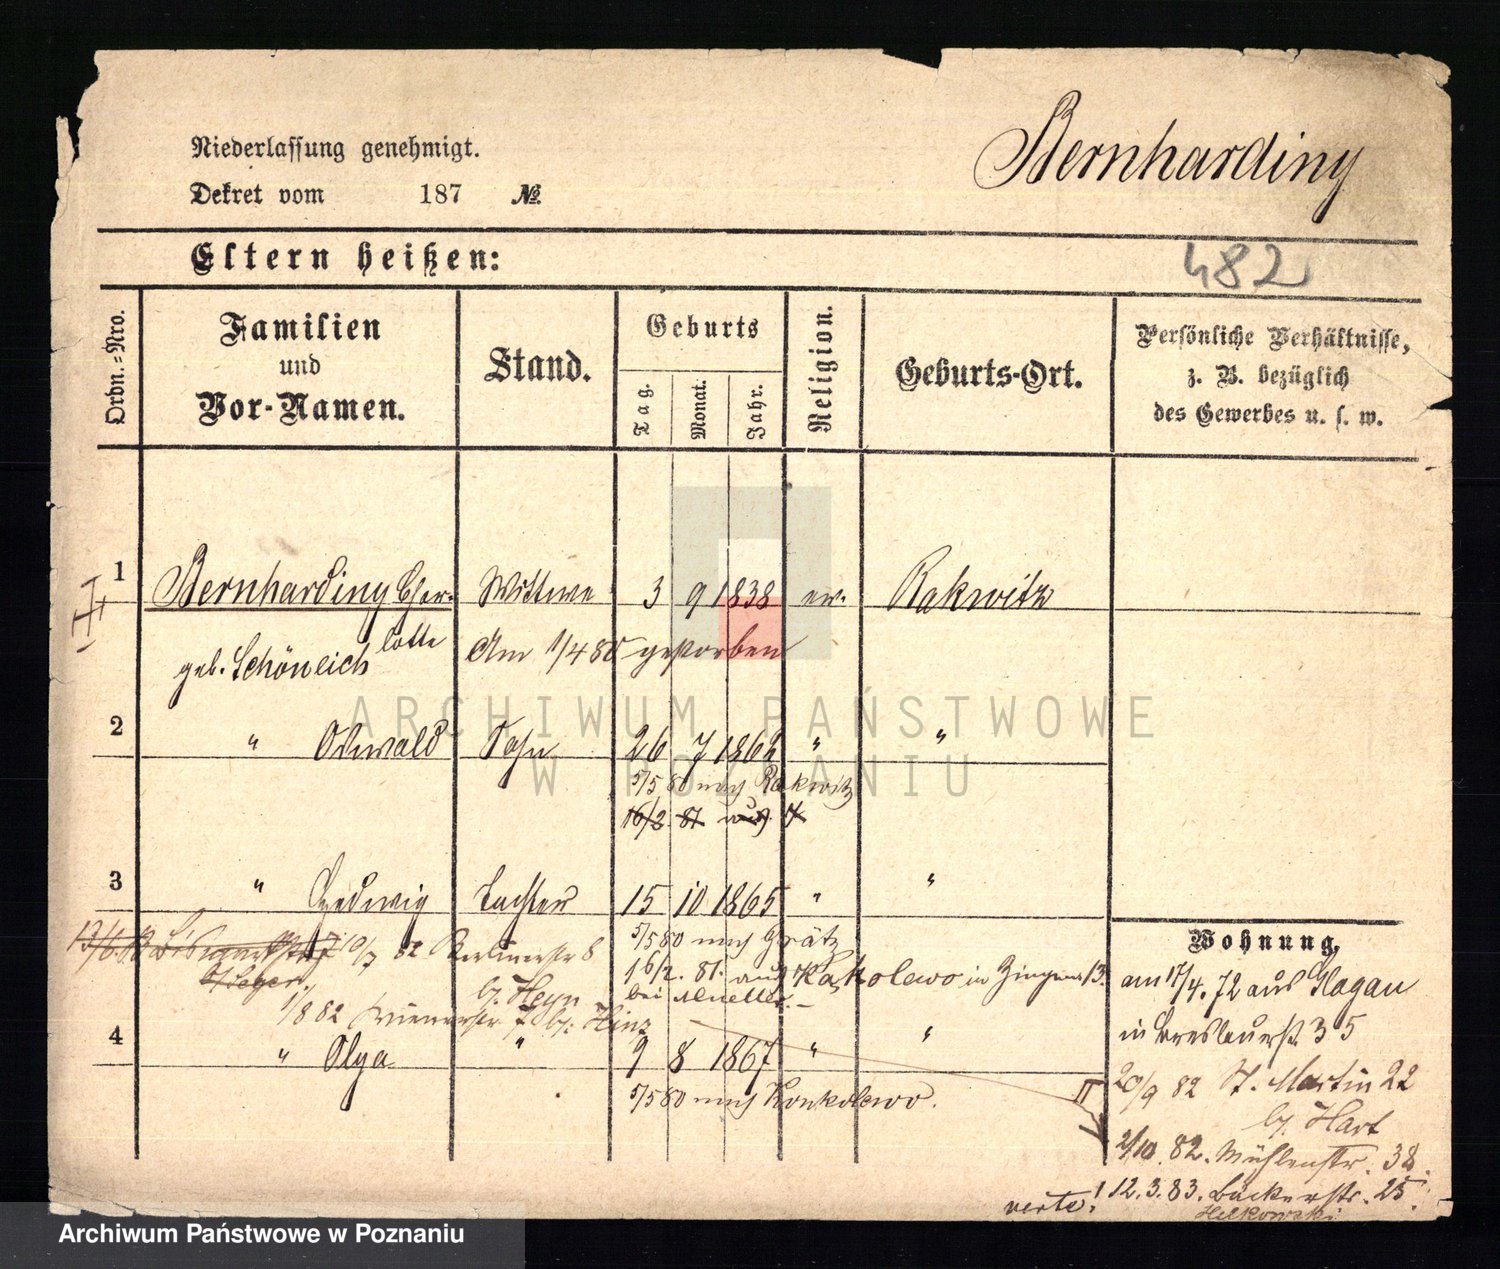 Niederlassung genehmigt.
Dekret vom 187 No.
Bernhardiny
482
Eltern heißen:
Ordn.-Nro.
Familien
und
Vor-Namen.
Stand.
Geburts
Tag.
Monat.
Jahr.
Religion.
Geburts-Ort.
Persönliche Verhältnisse,
z. B. bezüglich
des Gewerbes u. s. w.
1 Bernhardiny Char- Wittwe 3 9 1838 ev. Rakwitz
lotte
geb. Schöneich Am 1/4 80 gestorben
2 " Oswald Sohn 26 7 1862 " "
5/5 80 nach Rakwitz
16/2 81 aus
3 " Hedwig Tochter 15 10 1865 " "
5/5 80 nach Grätz
10/7 82 Berlinerstr 8
16/2. 81. aus Kąkolewo in
bei Mueller.
b/ Heyn
1/8 82 7 b/ Hinz
4 " Olga " 9 8 1867 " "
5/5 80 nach Konkolewo.
Wohnung,
am 17/4. 72 aus Glogau
in Breslauerst. 35
20/9 82 St. Martin 22
b/ Hart
2/10. 82. Mühlenstr. 38.
12. 3. 83. Bäckerstr. 25.
verte!
ARCHIWUM PAŃSTWOWE
W POZNANIU
Archiwum Państwowe w Poznaniu